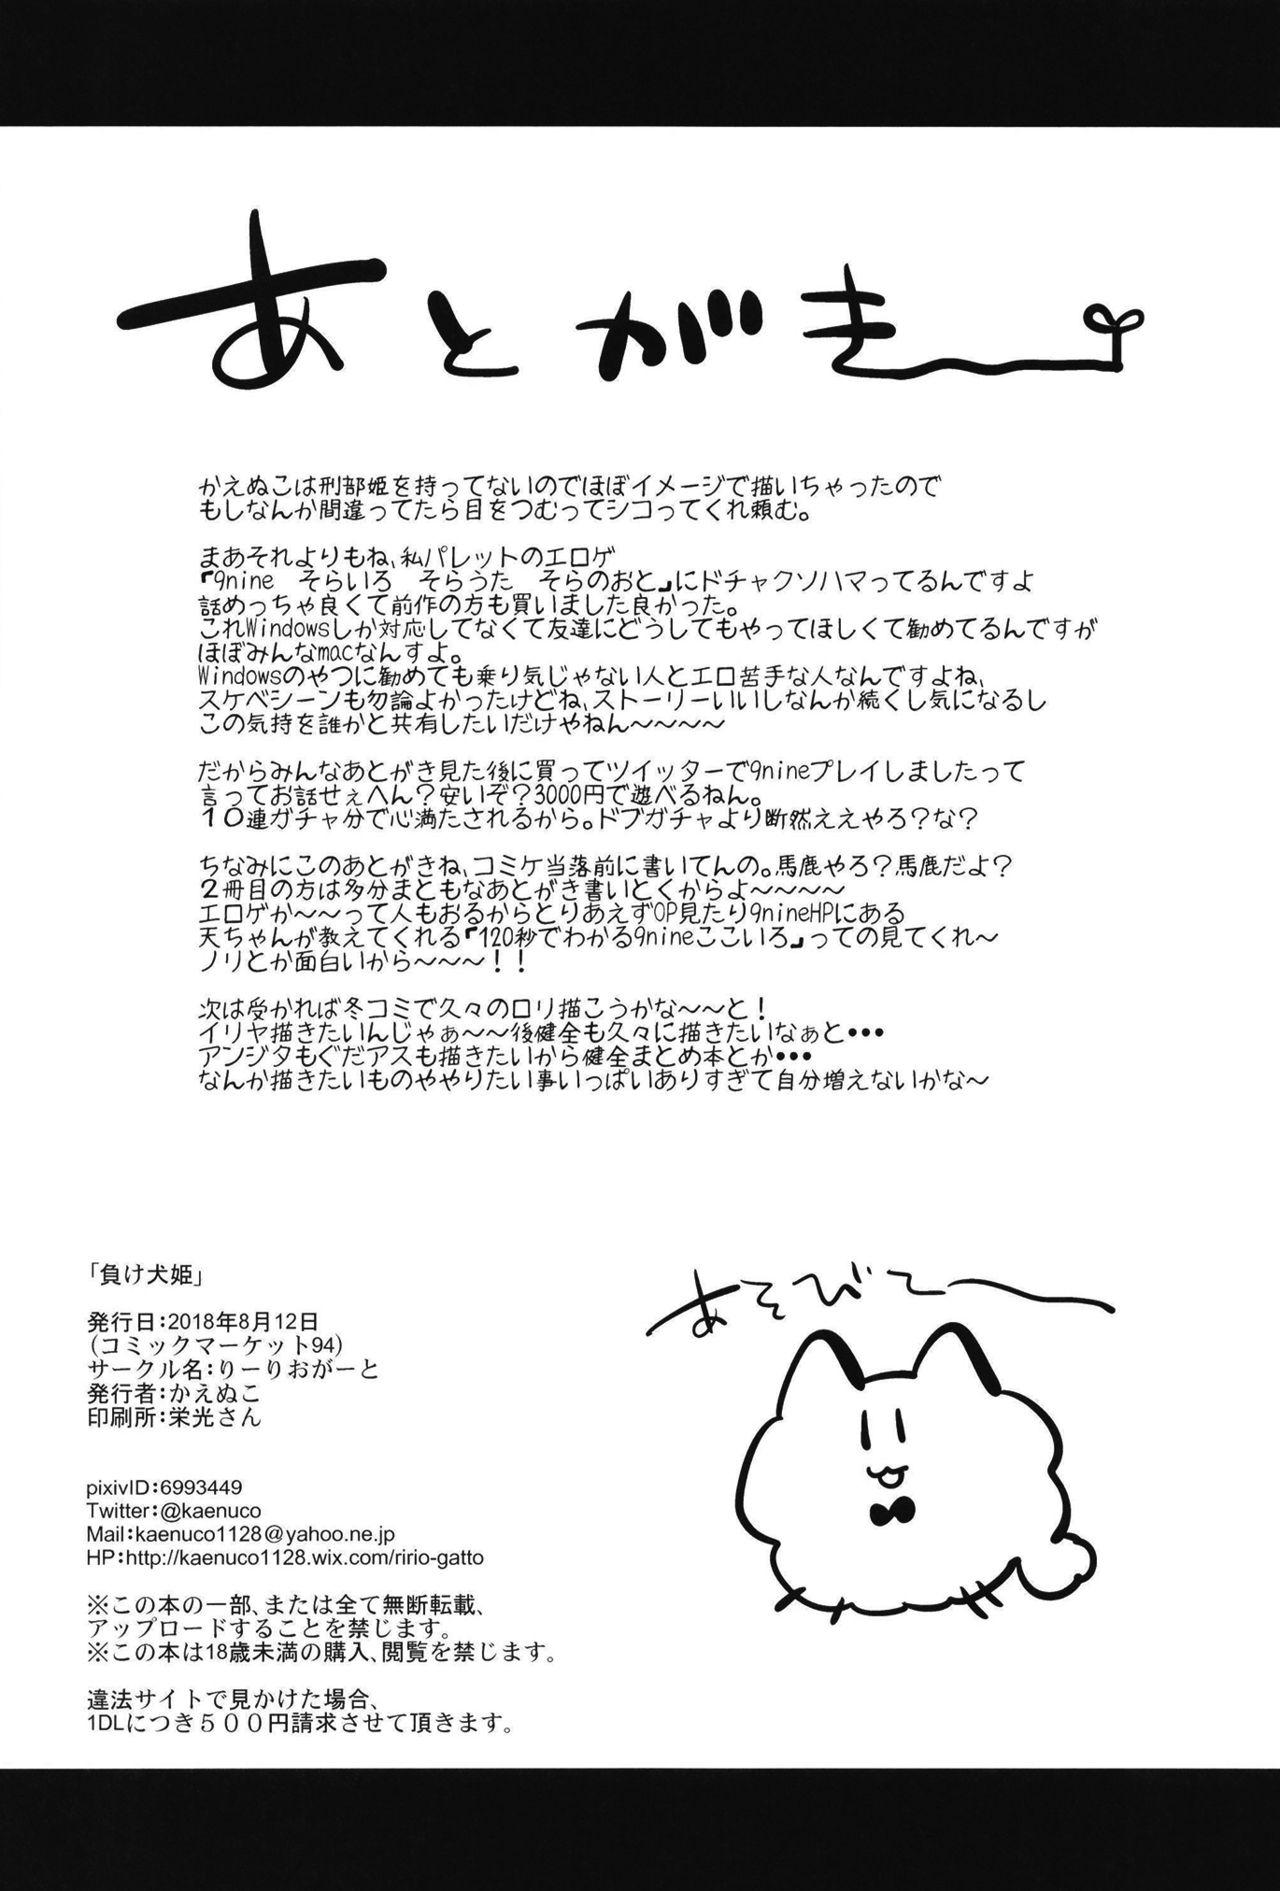 あとがき
かえぬこは刑部姫を持ってないのでほぼイメージで描いちゃったので
もしなんか間違ってたら目をつむってシコってくれ頼む。
まあそれよりもね、私パレットのエロゲ
『9nine　そらいろ　そらうた　そらのおと』にドチャクソハマってるんですよ
話めっちゃ良くて前作の方も買いました良かった。
これWindowsしか対応してなくて友達にどうしてもやってほしくて勧めてるんですが
ほぼみんなmacなんすよ。
Windowsのやつに勧めても乗り気じゃない人とエロ苦手な人なんですよね、
スケベシーンも勿論よかったけどね、ストーリーいいしなんか続くし気になるし
この気持を誰かと共有したいだけやねん～～～～
だからみんなあとがき見た後に買ってツイッターで9nineプレイしましたって
言ってお話せぇへん？安いぞ？3000円で遊べるねん。
１０連ガチャ分で心満たされるから。ドブガチャより断然ええやろ？な？
ちなみにこのあとがきね、コミケ当落前に書いてんの。馬鹿やろ？馬鹿だよ？
２冊目の方は多分まともなあとがき書いとくからよ～～～～
エロゲか～～って人もおるからとりあえずOP見たり9nineHPにある
天ちゃんが教えてくれる『120秒でわかる9nineここいろ』っての見てくれ～
ノリとか面白いから～～～！！
次は受かれば冬コミで久々のロリ描こうかな～～と！
イリヤ描きたいんじゃぁ～～後健全も久々に描きたいなぁと・・・
アンジタもぐだアスも描きたいから健全まとめ本とか・・・
なんか描きたいものややりたい事いっぱいありすぎて自分増えないかな～
「負け犬姫」
発行日：2018年8月12日
（コミックマーケット94）
サークル名：りーりおがーと
発行者：かえぬこ
印刷所：栄光さん
pixivID：6993449
Twitter：@kaenuco
Mail：kaenuco1128@yahoo.ne.jp
HP：http://kaenuco1128.wix.com/ririo-gatto
※この本の一部、または全て無断転載、
アップロードすることを禁じます。
※この本は18歳未満の購入、閲覧を禁じます。
違法サイトで見かけた場合、
1DLにつき５００円請求させて頂きます。
あそびてー